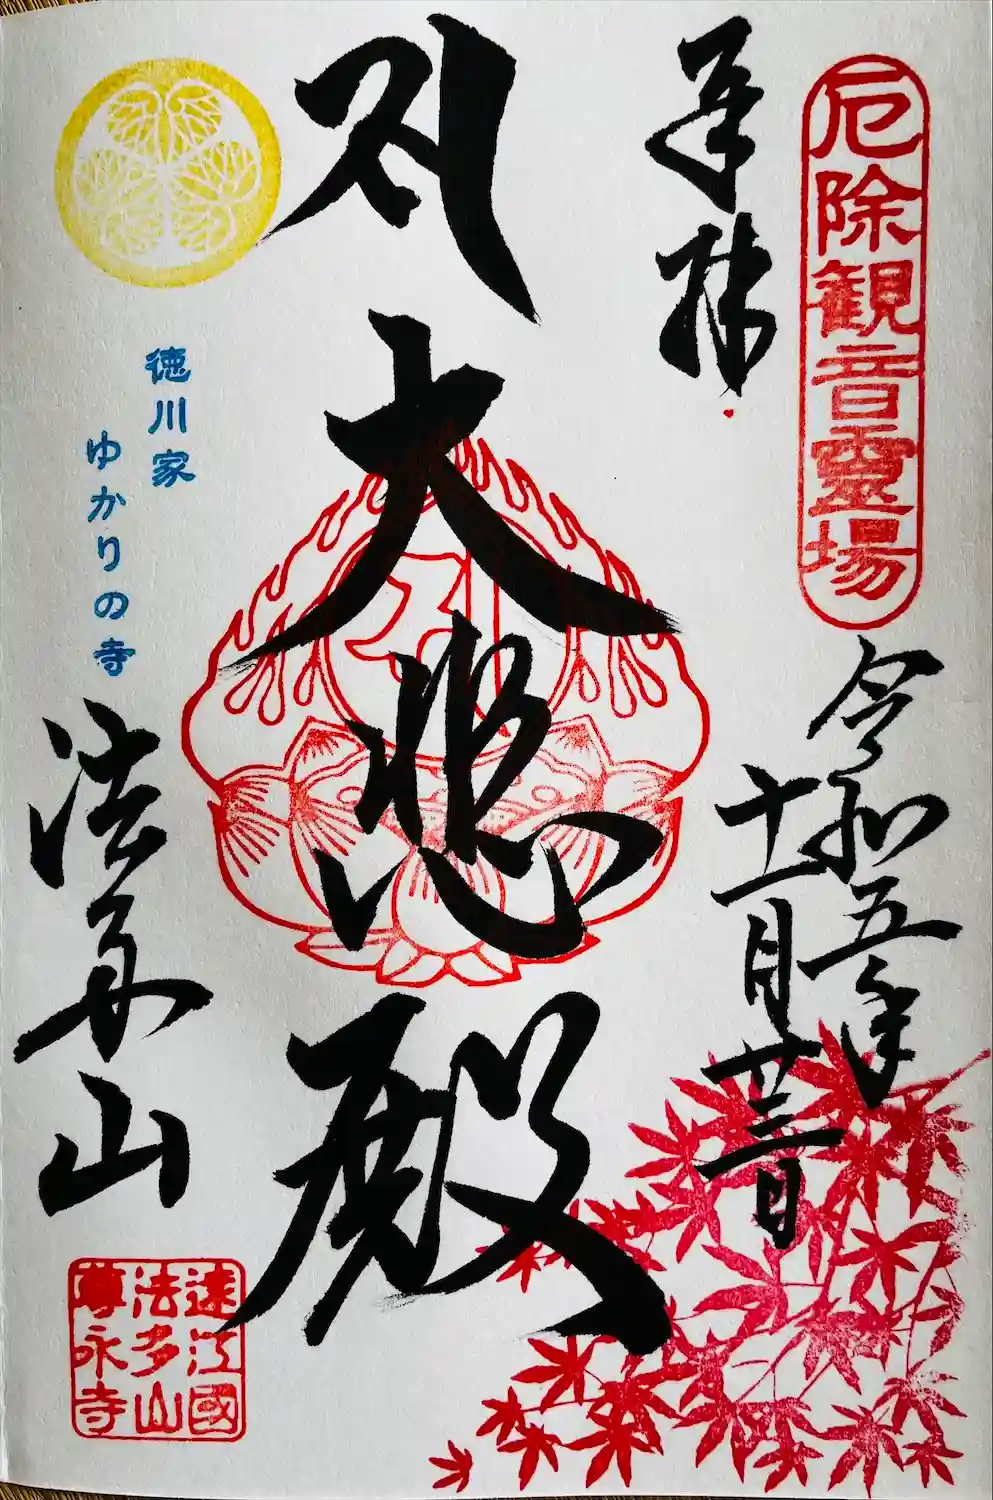 厄除観音霊場
奉拝
令和五年
十一月廿三日
大悲殿
徳川家
ゆかりの寺
法多山
遠江國
法多山
尊永寺